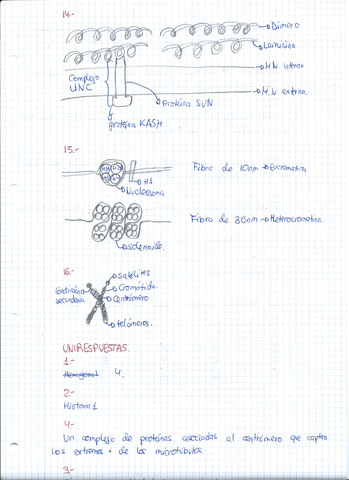 14.-
Dímero
Laminina
MN interna
Complejo
UNC
M.N externa.
Proteína SUN
proteína KASH
15.-
Fibra de 10nm → Eucromatina
H1
Nucleosoma
Fibra de 30nm → Heterocromatina
solenoide.
16.-
Satélites
Cromátida
Constricción
secundaria
Centrómero
telómeros.
UNIRESPUESTAS.
1-
Hexagonal 4.
2-
Histona 1
4-
Un complejo de proteínas asociadas al centrómero que capten
los extremos + de los microtúbulos.
3-